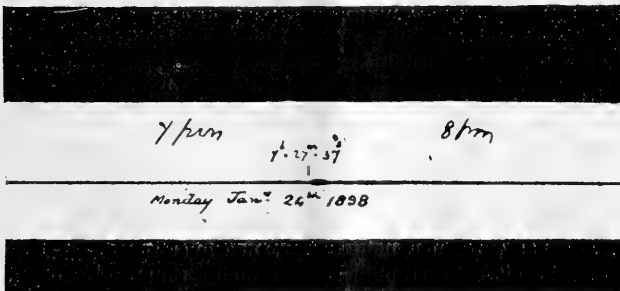 7 pm 8 pm
7ʰ·27ᵐ·37ˢ
Monday Janʸ 24ᵗʰ 1898